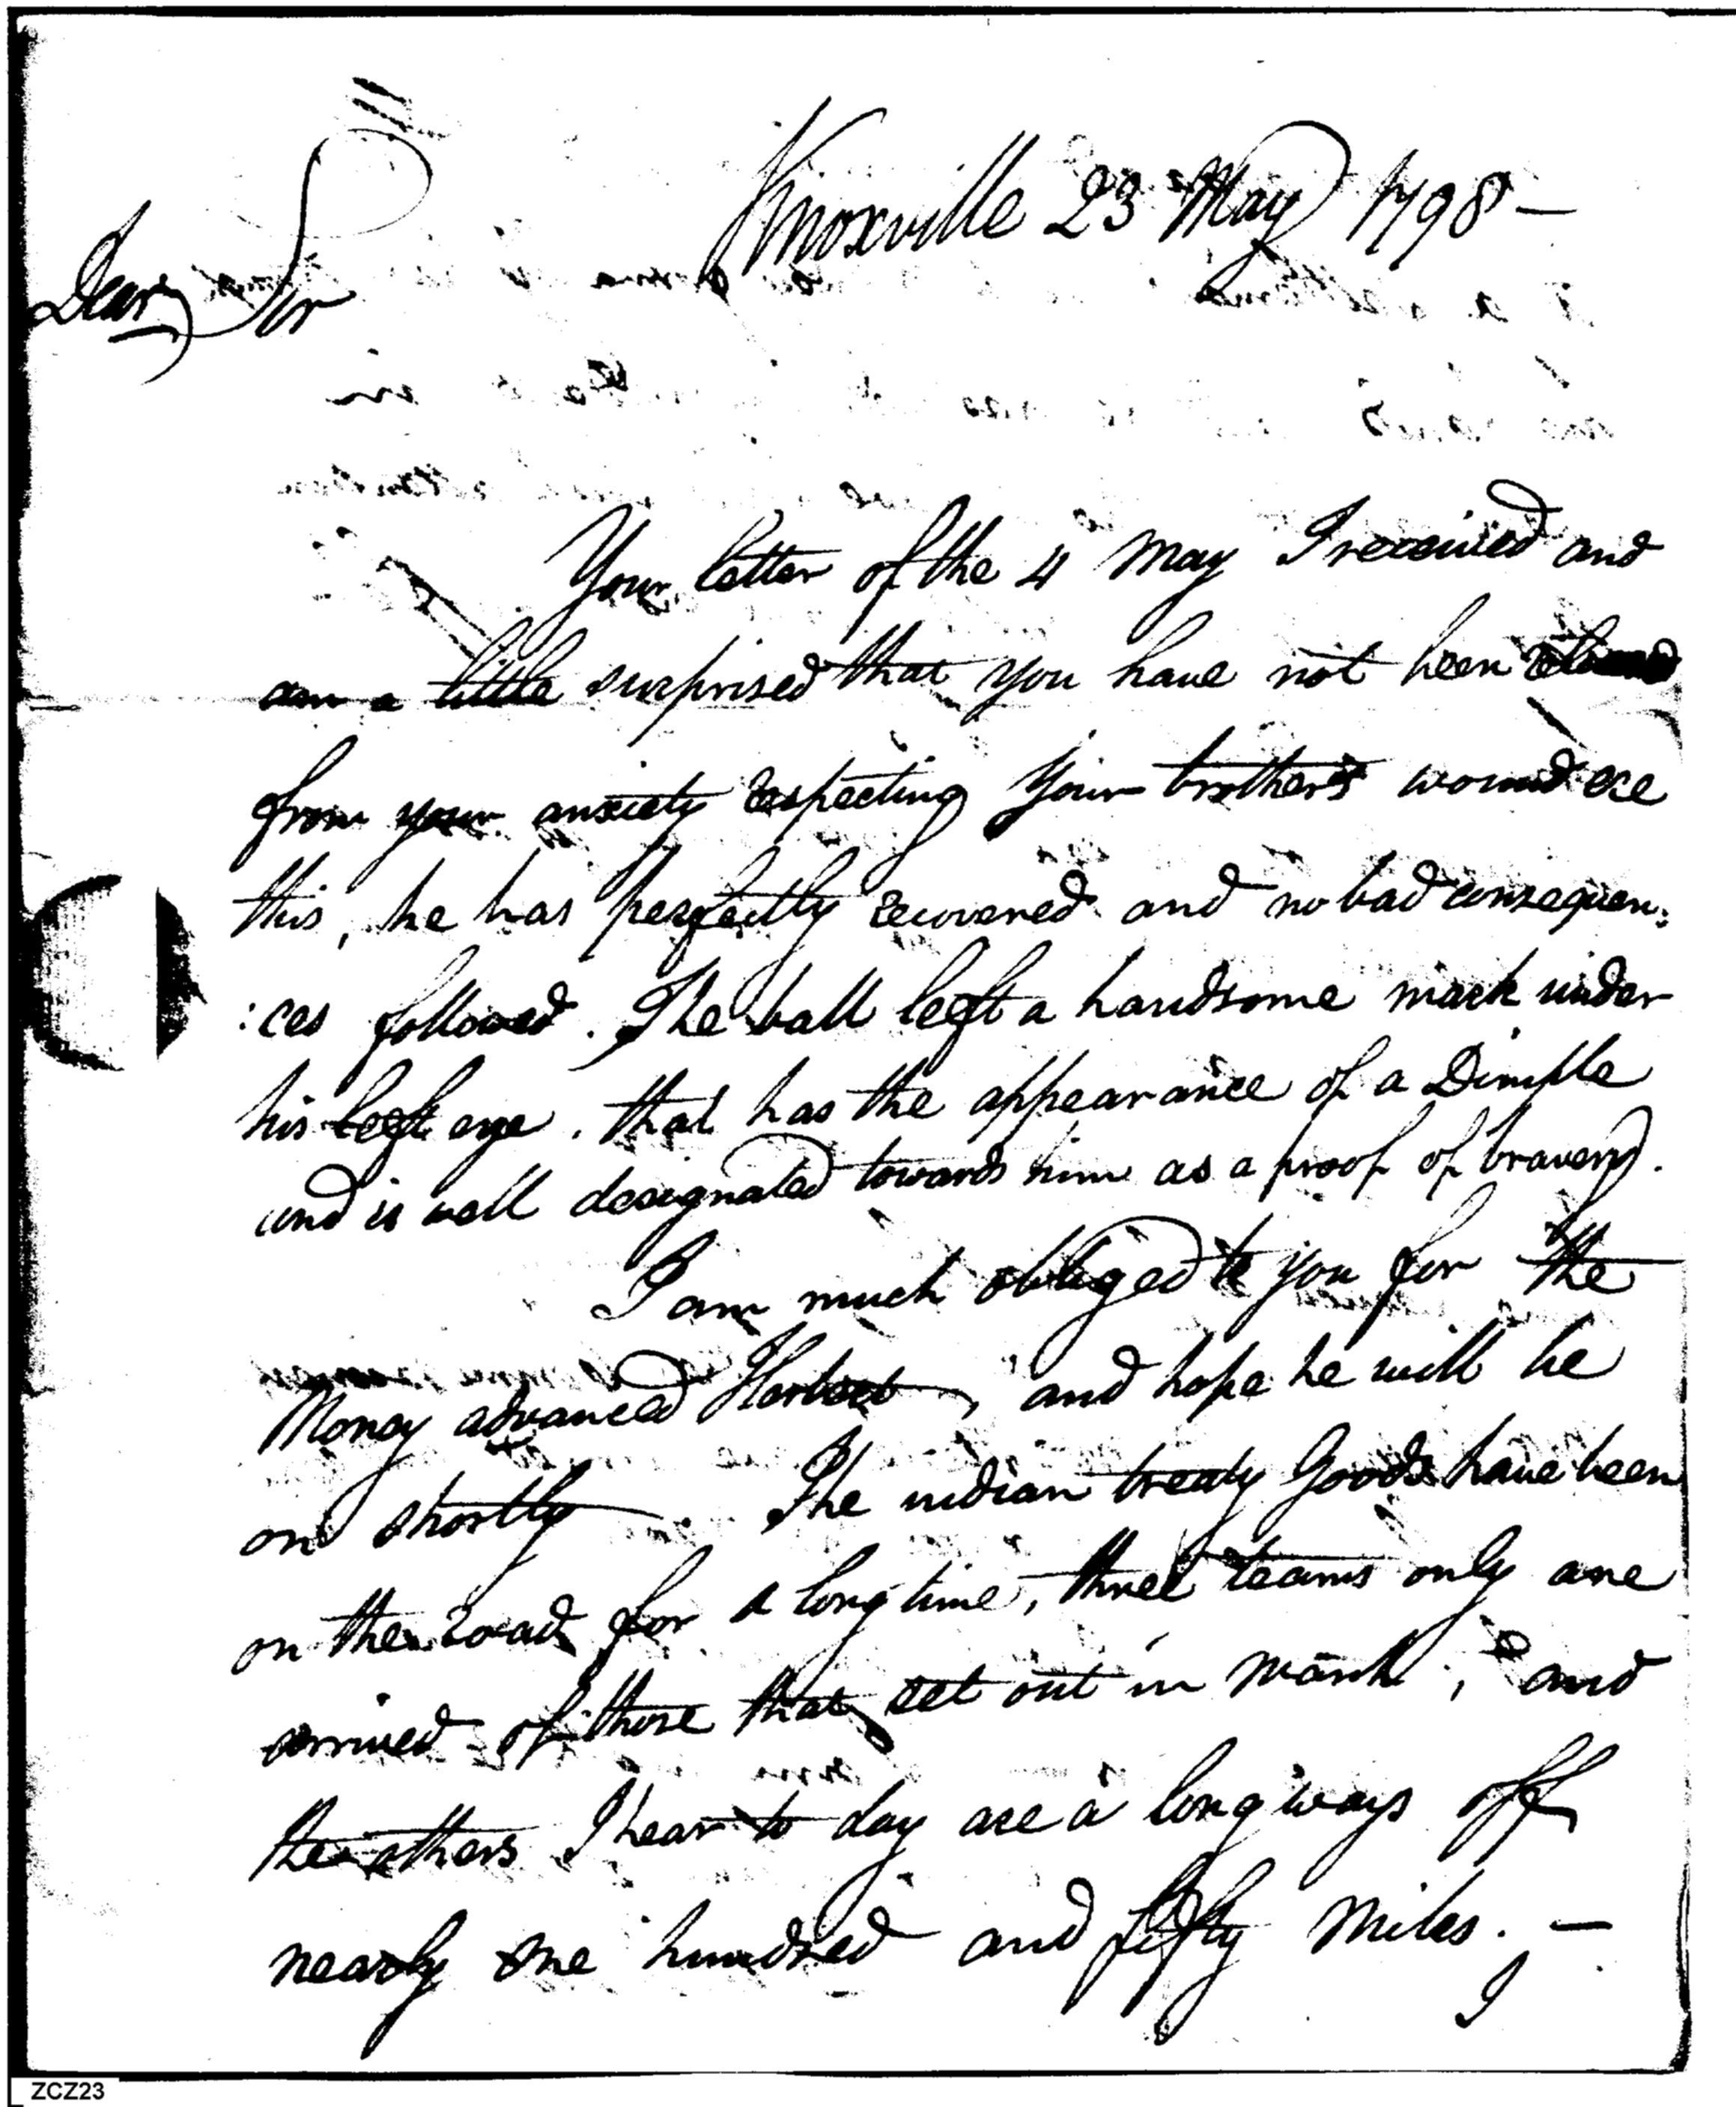 Knoxville 23 May 1798 —
Dear Sir
Your letter of the 4 May I received and
am a little surprised that you have not been
from your anxiety respecting your brother's wound ere
this, he has perfectly recovered and no bad consequen:
:ces followed. The ball left a handsome mark under
his left eye. that has the appearance of a Dimple
and is well designated towards him as a proof of bravery.
I am much obliged to you for the
Money advanced, and hope he will be
on shortly. The indian treaty Goods have been
on the road for a long time, three teams only are
arrived of those that set out in march; and
the others I hear to day are a long ways off
nearly one hundred and fifty miles. —
I
ZCZ23